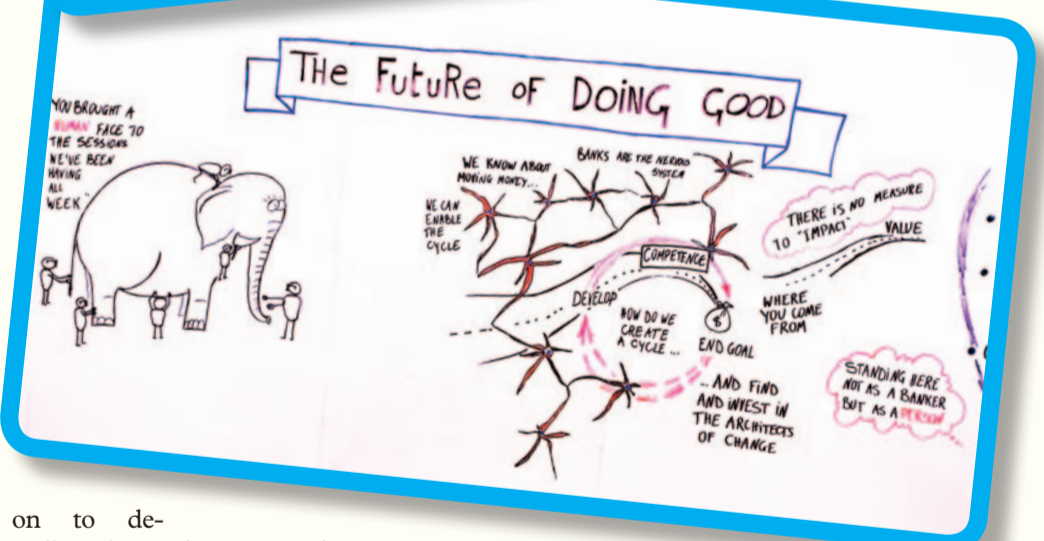 THE FUTURE OF DOING GOOD
YOU BROUGHT A
HUMAN FACE TO
THE SESSIONS
WE'VE BEEN
HAVING
ALL
WEEK
WE KNOW ABOUT
MOVING MONEY...
BANKS ARE THE NERVOUS
SYSTEM
WE CAN
ENABLE
THE
CYCLE
COMPETENCE
DEVELOP
HOW DO WE
CREATE
A CYCLE...
$
END GOAL
...AND FIND
AND INVEST IN
THE ARCHITECTS
OF CHANGE
THERE IS NO MEASURE
TO "IMPACT"
VALUE
WHERE
YOU COME
FROM
STANDING HERE
NOT AS A BANKER
BUT AS A PERSON
on to de-